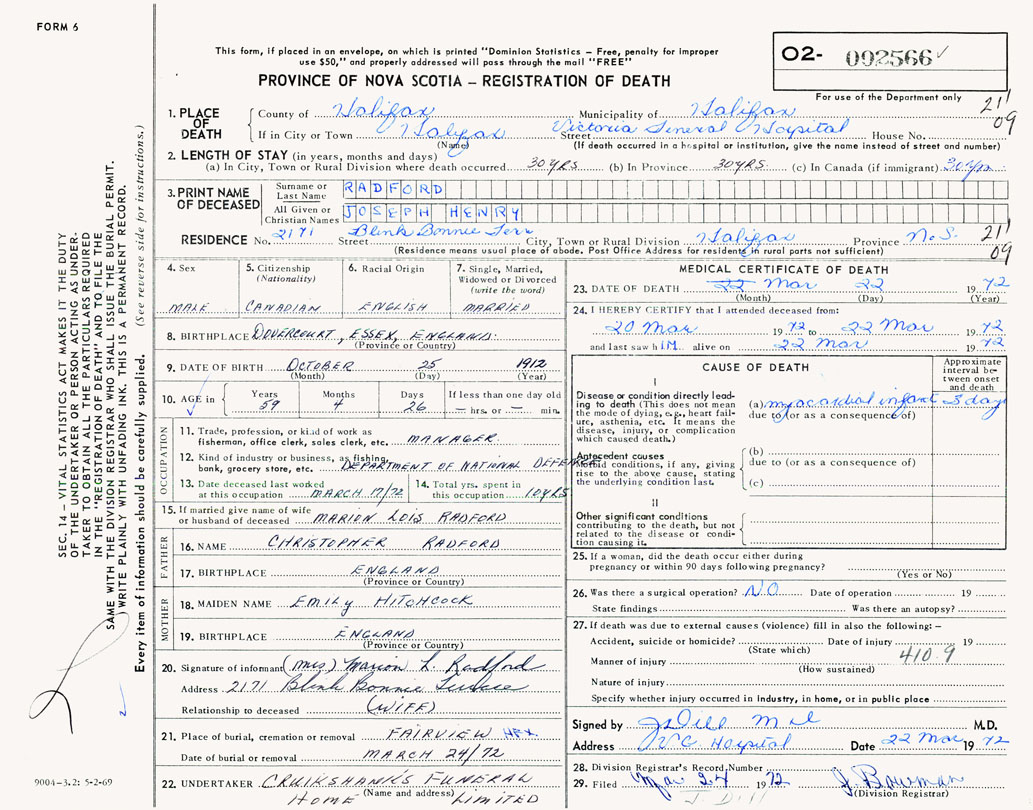 FORM 6
This form, if placed in an envelope, on which is printed "Dominion Statistics – Free, penalty for improper
use $50," and properly addressed will pass through the mail "FREE"
PROVINCE OF NOVA SCOTIA – REGISTRATION OF DEATH
O2- 002566 ✓
For use of the Department only
21 1
09
1. PLACE OF DEATH
County of Halifax Municipality of Halifax
If in City or Town Halifax Street Victoria General Hospital House No.
(Name) (If death occurred in a hospital or institution, give the name instead of street and number)
2. LENGTH OF STAY (in years, months and days)
(a) In City, Town or Rural Division where death occurred 30 YRS (b) In Province 30 YRS. (c) In Canada (if immigrant) 30 yrs
3. PRINT NAME OF DECEASED
Surname or Last Name RADFORD
All Given or Christian Names JOSEPH HENRY
RESIDENCE No. 2171 Street Blink Bonnie Terr City, Town or Rural Division Halifax Province N.S.
(Residence means usual place of abode. Post Office Address for residents in rural parts not sufficient)
21 1
09
4. Sex
MALE
5. Citizenship
(Nationality)
CANADIAN
6. Racial Origin
ENGLISH
7. Single, Married,
Widowed or Divorced
(write the word)
MARRIED
8. BIRTHPLACE DOVERCOURT, ESSEX, ENGLAND.
(Province or Country)
9. DATE OF BIRTH OCTOBER 25 1912
(Month) (Day) (Year)
10. AGE in
Years Months Days If less than one day old
59 4 26 – hrs. or – min.
OCCUPATION
11. Trade, profession, or kind of work as
fisherman, office clerk, sales clerk, etc. MANAGER
12. Kind of industry or business, as fishing,
bank, grocery store, etc. DEPARTMENT OF NATIONAL DEFENCE
13. Date deceased last worked
at this occupation MARCH 17/72
14. Total yrs. spent in
this occupation 10 YRS
15. If married give name of wife
or husband of deceased MARION LOIS RADFORD
FATHER
16. NAME CHRISTOPHER RADFORD
17. BIRTHPLACE ENGLAND
(Province or Country)
MOTHER
18. MAIDEN NAME EMILY HITCHCOCK
19. BIRTHPLACE ENGLAND
(Province or Country)
20. Signature of informant (Mrs) Marion L. Radford
Address 2171 Blink Bonnie Terrace
Relationship to deceased (WIFE)
21. Place of burial, cremation or removal FAIRVIEW HFX
Date of burial or removal MARCH 24/72
22. UNDERTAKER CRUIKSHANK'S FUNERAL
(Name and address)
HOME LIMITED
MEDICAL CERTIFICATE OF DEATH
23. DATE OF DEATH 22 Mar 22 1972
(Month) (Day) (Year)
24. I HEREBY CERTIFY that I attended deceased from:
20 Mar 1972 to 22 Mar 1972
and last saw h IM alive on 22 Mar 1972
CAUSE OF DEATH
Approximate
interval be-
tween onset
and death
I
Disease or condition directly lead-
ing to death (This does not mean
the mode of dying, e.g., heart fail-
ure, asthenia, etc. It means the
disease, injury, or complication
which caused death.)
(a) myocardial infarct 3 days
due to (or as a consequence of)
Antecedent causes
Morbid conditions, if any, giving
rise to the above cause, stating
the underlying condition last.
(b)
due to (or as a consequence of)
(c)
II
Other significant conditions
contributing to the death, but not
related to the disease or condi-
tion causing it.
25. If a woman, did the death occur either during
pregnancy or within 90 days following pregnancy?
(Yes or No)
26. Was there a surgical operation? NO Date of operation 19
State findings Was there an autopsy?
27. If death was due to external causes (violence) fill in also the following: –
Accident, suicide or homicide? Date of injury 19
(State which)
410.9
Manner of injury
(How sustained)
Nature of injury
Specify whether injury occurred in industry, in home, or in public place
Signed by J Dill M.D.
Address V G Hospital Date 22 Mar 1972
28. Division Registrar's Record Number
29. Filed Mar 24 1972 J. Bowman
J. Dill (Division Registrar)
SEC. 14 – VITAL STATISTICS ACT MAKES IT THE DUTY
OF THE UNDERTAKER OR PERSON ACTING AS UNDER-
TAKER TO OBTAIN ALL THE PARTICULARS REQUIRED
IN THE "REGISTRATION OF DEATH" AND TO FILE THE
SAME WITH THE DIVISION REGISTRAR WHO SHALL ISSUE THE BURIAL PERMIT.
WRITE PLAINLY WITH UNFADING INK. THIS IS A PERMANENT RECORD.
Every item of information should be carefully supplied. (See reverse side for instructions.)
9004-3.2: 5-2-69